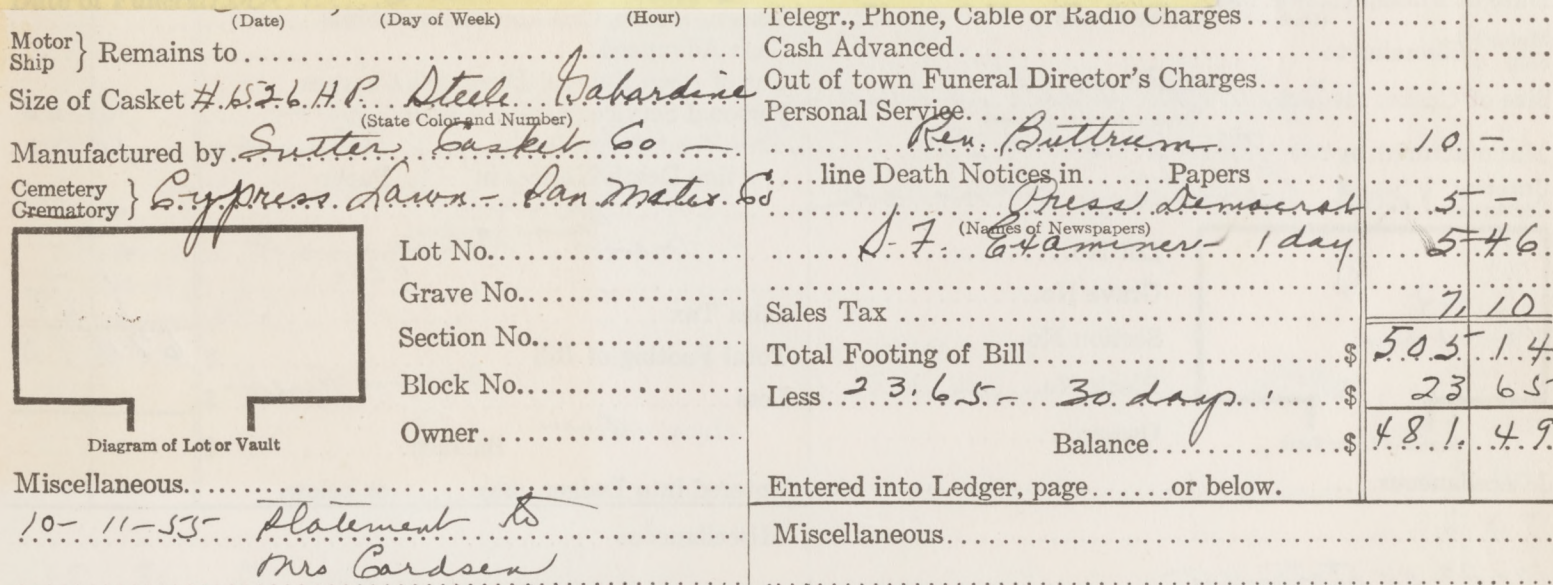 (Date) (Day of Week) (Hour)
Motor Ship } Remains to
Size of Casket #6526 H.P. Steele Gabardine
(State Color and Number)
Manufactured by Sutter Casket Co —
Cemetery Crematory } Cypress Lawn - San Mateo Co
Lot No.
Grave No.
Section No.
Block No.
Owner
Diagram of Lot or Vault
Miscellaneous
10-11-55 Statement to
Mrs Cardsen
Telegr., Phone, Cable or Radio Charges
Cash Advanced
Out of town Funeral Director's Charges
Personal Service
Rev. Buttrum 10 -
line Death Notices in ...... Papers
Press Democrat 5 -
(Names of Newspapers)
S.F. Examiner - 1 day 5 46
Sales Tax 7 10
Total Footing of Bill $ 505 14
Less 23.65 - 30 days $ 23 65
Balance $ 481. 49
Entered into Ledger, page ...... or below.
Miscellaneous